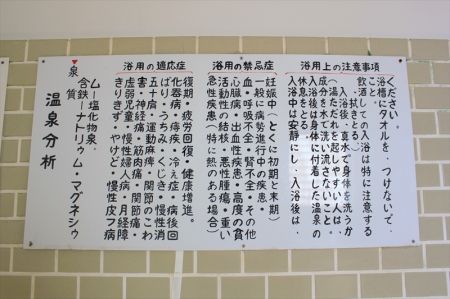 温泉分析
▼泉質
含鉄ーナトリウム・マグネシウ
ムー塩化物泉。
浴用の適応症
きりきず・やけど・慢性皮フ病
虚弱児童・慢性婦人病・月経障
害・神経痛・筋肉痛・関節痛・
五十肩・運動麻痺・関節のこわ
ばり・うちみ・くじき・慢性消
化器病・痔疾・冷え症・病後回
復期・疲労回復・健康増進。
浴用の禁忌症
急性疾患(特に熱のある場合)
活動性の結核・悪性腫瘍・重い
心臓病・出血性疾患・高度の貧
血・呼吸不全・腎不全・その他
一般に病勢進行中の疾患・
妊娠中(とくに初期と末期)
浴用上の注意事項
入浴中は安静にし、入浴後は、
休息をとる。
入浴後は身体に付着した温泉の
成分を水で洗い流さないこと。
(湯ただれを起しやすい人は、
入浴後、真水で身体を洗うか
、拭きとる)
飲酒しての入浴は特に注意する
こと
浴槽にタオルを、つけないで、
ください。